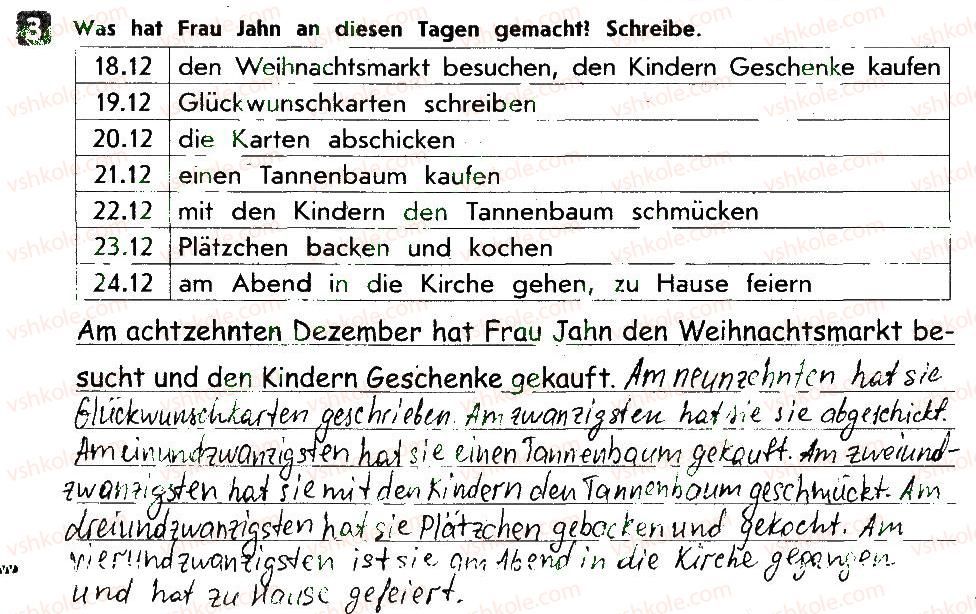 3 Was hat Frau Jahn an diesen Tagen gemacht? Schreibe.
18.12 den Weihnachtsmarkt besuchen, den Kindern Geschenke kaufen
19.12 Glückwunschkarten schreiben
20.12 die Karten abschicken
21.12 einen Tannenbaum kaufen
22.12 mit den Kindern den Tannenbaum schmücken
23.12 Plätzchen backen und kochen
24.12 am Abend in die Kirche gehen, zu Hause feiern
Am achtzehnten Dezember hat Frau Jahn den Weihnachtsmarkt be-
sucht und den Kindern Geschenke gekauft. Am neunzehnten hat sie
Glückwunschkarten geschrieben. Am zwanzigsten hat sie sie abgeschickt.
Am einundzwanzigsten hat sie einen Tannenbaum gekauft. Am zweiund-
zwanzigsten hat sie mit den Kindern den Tannenbaum geschmückt. Am
dreiundzwanzigsten hat sie Plätzchen gebacken und gekocht. Am
vierundzwanzigsten ist sie am Abend in die Kirche gegangen
und hat zu Hause gefeiert.
vshkole.com